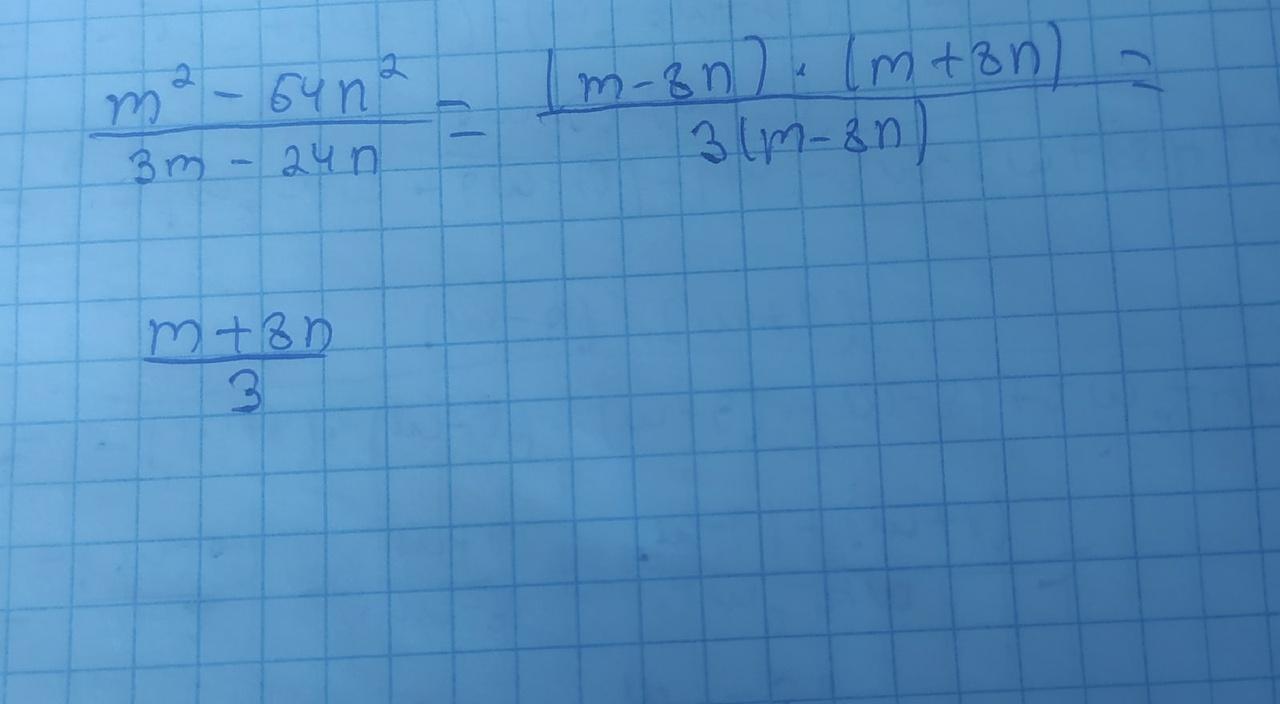 m² - 64n² / 3m - 24n = (m - 8n) · (m + 8n) / 3(m - 8n) =
m + 8n / 3